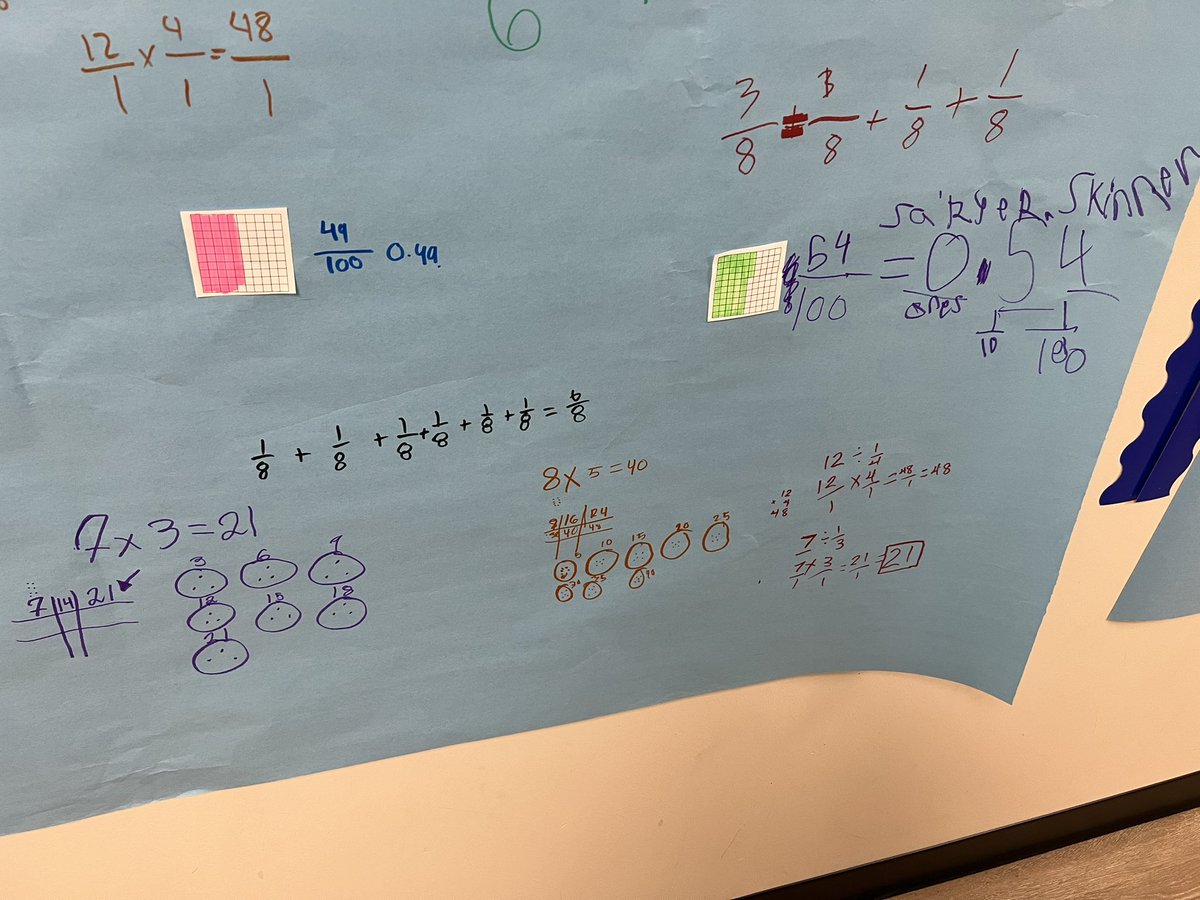 6
12/1 x 4/1 = 48/1
3/8 = 1/8 + 1/8 + 1/8
49/100 0.49
Sawyer Skinner
54/100 = 0.54
ones 1/10 1/100
1/8 + 1/8 + 1/8 + 1/8 + 1/8 + 1/8 = 6/8
7 x 3 = 21
7 | 14 | 21
3 6 9
12 15 18
21
8 x 5 = 40
8 | 16 | 24
40 | 48
5 10 15 20 25
30 35 40
12 ÷ 1/4
12/1 x 4/1 = 48/1 = 48
12
x 4
48
7 ÷ 1/3
7/1 x 3/1 = 21/1 = 21